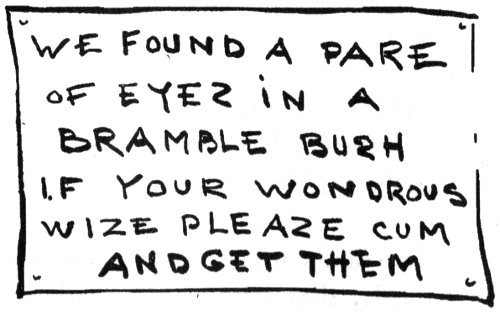 WE FOUND A PARE
OF EYEZ iN A
BRAMBLE BUSH
I.F YOUR WONDROUS
WIZE PLEAZE CUM
AND GET THEM